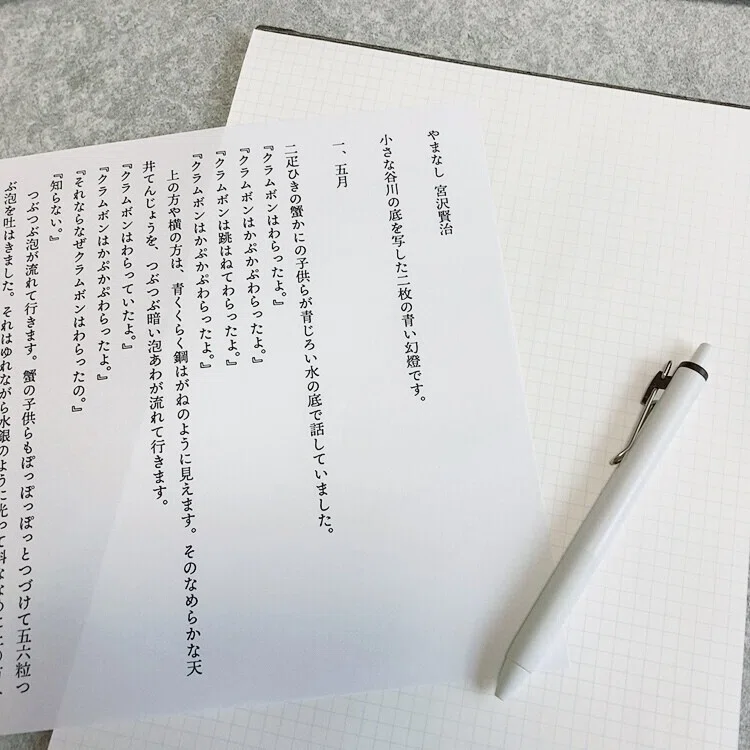 やまなし 宮沢賢治
小さな谷川の底を写した二枚の青い幻燈です。
一、五月
二疋ひきの蟹かにの子供らが青じろい水の底で話していました。
『クラムボンはわらったよ。』
『クラムボンはかぷかぷわらったよ。』
『クラムボンは跳はねてわらったよ。』
『クラムボンはかぷかぷわらったよ。』
上の方や横の方は、青くくらく鋼はがねのように見えます。そのなめらかな天
井てんじょうを、つぶつぶ暗い泡あわが流れて行きます。
『クラムボンはわらっていたよ。』
『クラムボンはかぷかぷわらったよ。』
『それならなぜクラムボンはわらったの。』
『知らない。』
つぶつぶ泡が流れて行きます。蟹の子供らもぽっぽっぽっとつづけて五六粒つ
ぶ泡を吐はきました。それはゆれながら水銀のように光って斜ななめに上の方へ